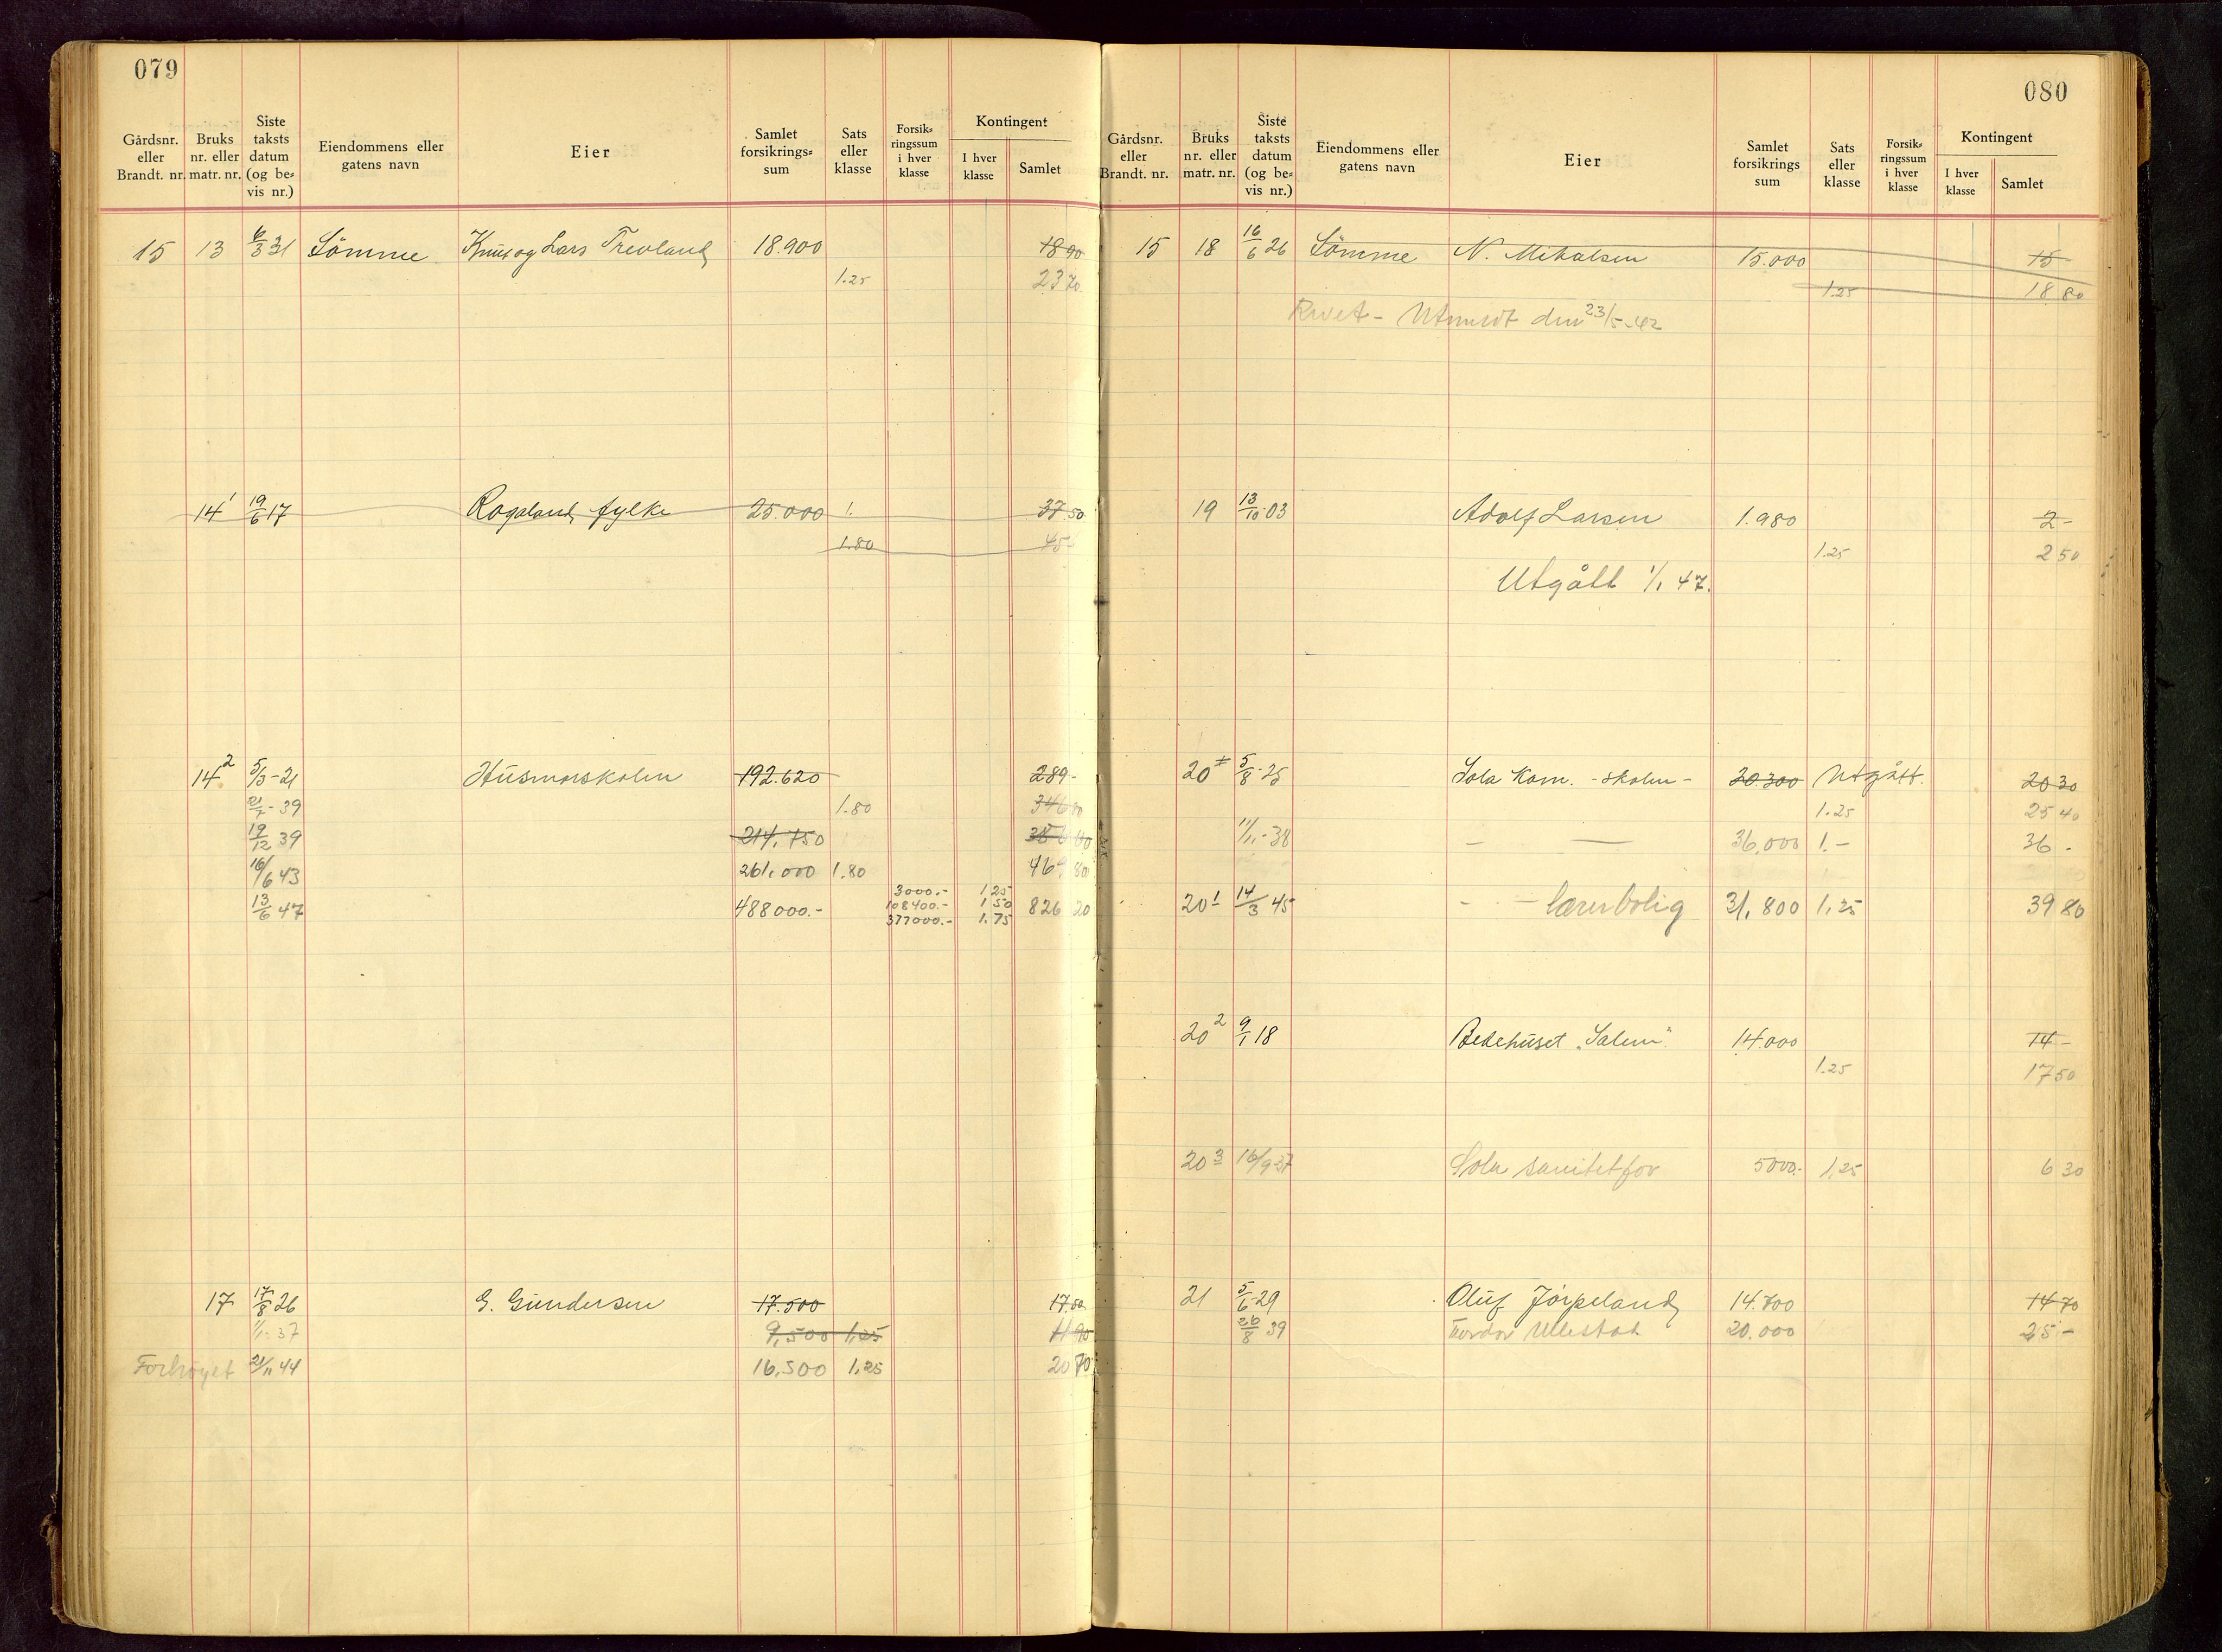 079
Gårdsnr. eller Brandt. nr. Bruks nr. eller matr. nr. Siste taksts datum (og be= vis nr.) Eiendommens eller gatens navn Eier Samlet forsikrings= sum Sats eller klasse Forsik= ringssum i hver klasse Kontingent I hver klasse Samlet
15 13 6/3 31 Sömme Knut og Lars Trevland 18.900 18 90
1.25 23 70
14 1 19/6 17 Rogaland fylke 25.000 1. 37.50
1.80 45-
14 2 5/3-21 Husmorskolen 192.620 289-
21/7-39 1.80 346 80
19/12 39 214,750
16/6 43 261,000 1.80 469 80
13/6 47 488000.- 826 20
3000.- 1 25
108400.- 1 50
377000.- 1.75
17 17/8 26 G. Gundersen 17.500 17.50
1/1-37 9,500 1,25 11 90
Forhøyet 21/11 44 16,500 1,25 20 70
080
Gårdsnr. eller Brandt. nr. Bruks nr. eller matr. nr. Siste taksts datum (og be= vis nr.) Eiendommens eller gatens navn Eier Samlet forsikrings sum Sats eller klasse Forsik= ringssum i hver klasse Kontingent I hver klasse Samlet
15 18 16/6 26 Sömme N. Mikalsen 15.000 15
1.25 18 80
Rivet - Utmeldt den 23/5-42
19 13/10-03 Adolf Larsen 1.980 2-
1.25 2 50
Utgått 1/1 47.
20 1 5/8-25 Sola Kom. - skolen - 20.300 Utgått. 20 30
1.25 25 40
11/11-38 - — 36,000 1.- 36 -
20 1 14/3 45 - - lærerbolig 31,800 1,25 39 80
20 2 9/1 18 Bedehuset „Salem". 14.000 14-
1.25 17 50
20 3 16/9-37 Sola sanitetfor 5000.- 1,25 6 30
21 5/6-29 Oluf Jörpeland 14.700 14 70
26/8 39 Ullestad 20.000 25-